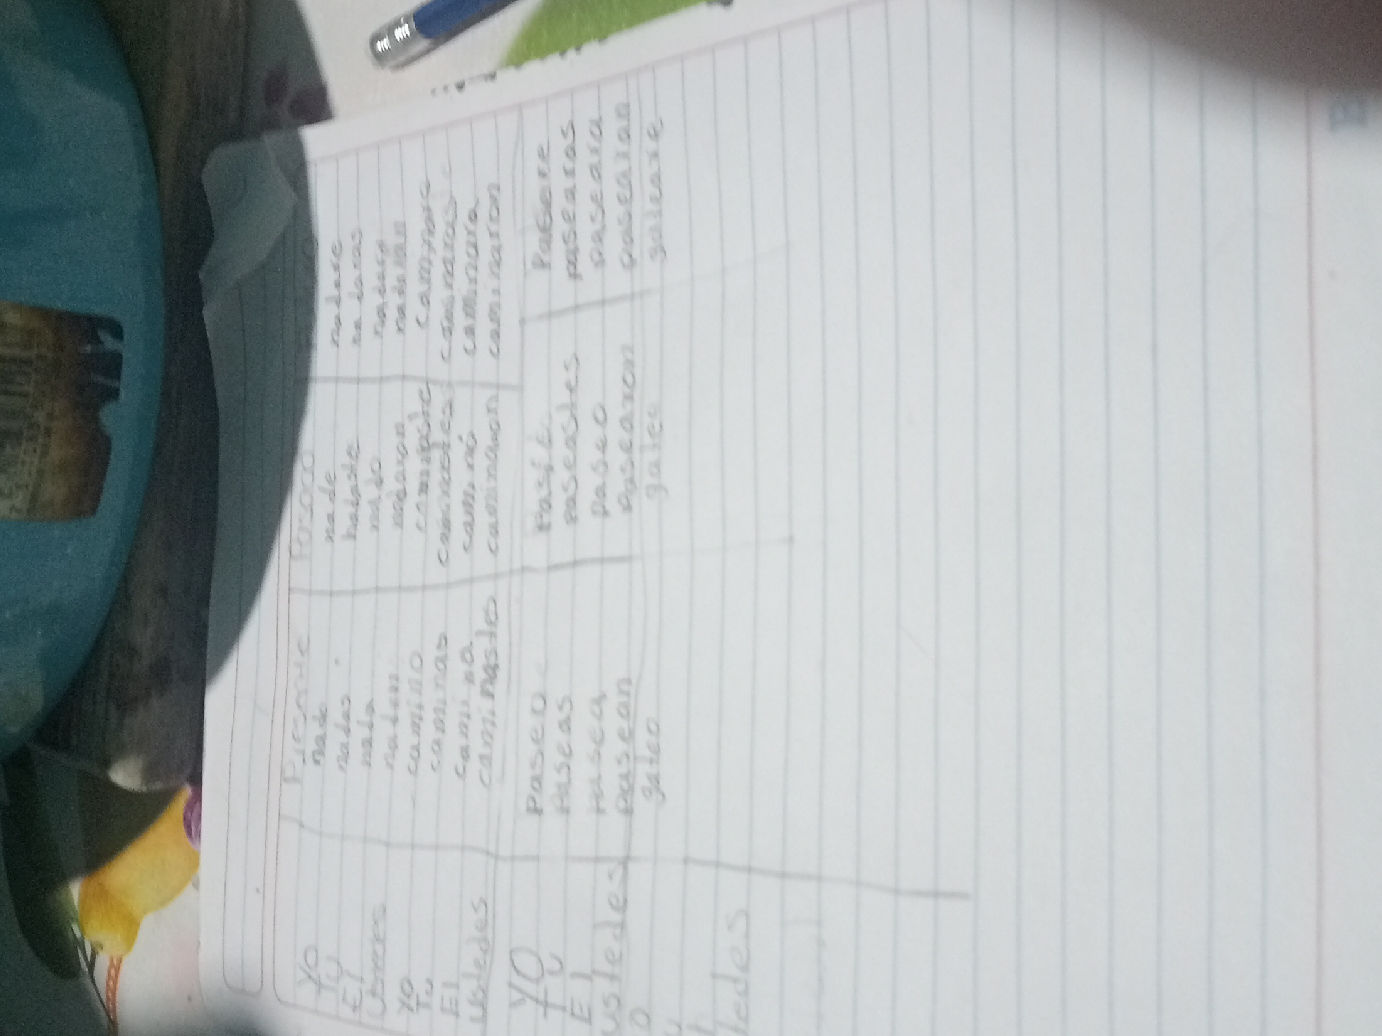 Presente Pasado
Yo nado nade nadare
Tu nadas nadaste nadaras
El nada nado nadara
Ustedes nadan nadaron nadaran
Yo camino camine caminare
Tu caminas caminastes caminaras
El camina caminó caminara
Ustedes caminastes caminaron caminaron
Yo Paseo Pasere
Tu Paseas paseastes pasearas
El pasea paseo paseara
ustedes pasean Pasearon pasearan
gateo gateo gateare
tedes